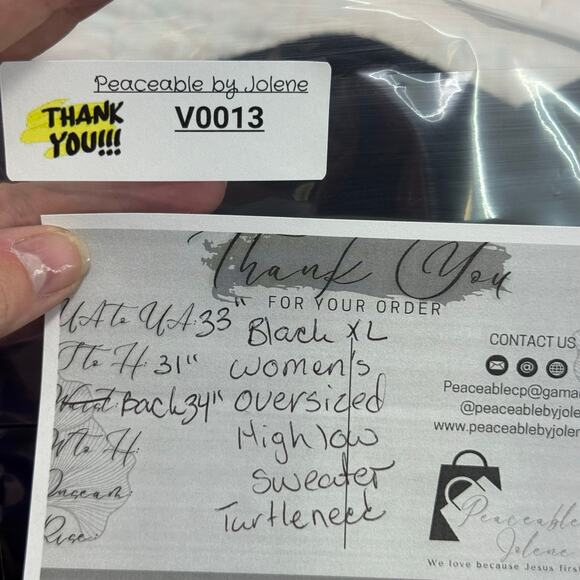 Peaceable by Jolene
THANK
YOU!!!
V0013
Thank You
FOR YOUR ORDER
UA to UA: 33"
T to H: 31"
Waist: Back 34"
W to H:
Inseam:
Rise:
Black XL
Women's
Oversized
High low
Sweater
Turtleneck
CONTACT US
Peaceablecp@gama
@peaceablebyjole
www.peaceablebyjolen
Peaceable
Jolene
We love because Jesus firs